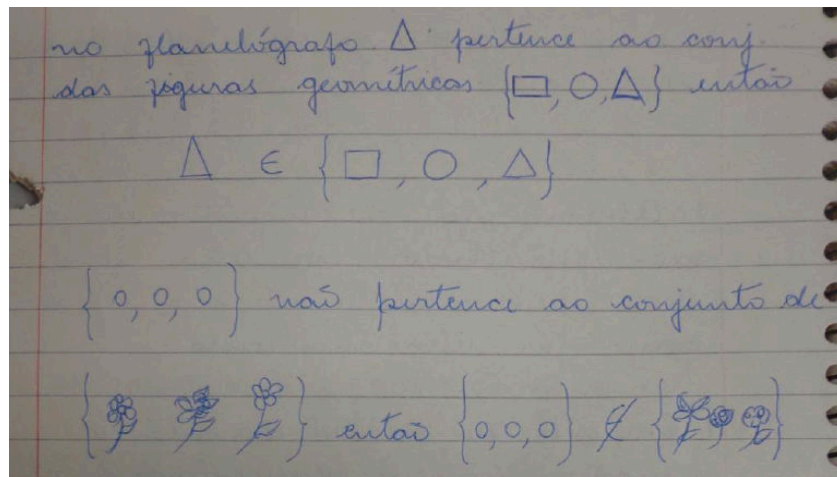 no flanelógrafo Δ pertence ao conj.
das figuras geométricas {□, ○, Δ} então
Δ ∈ {□, ○, Δ}
{0, 0, 0} não pertence ao conjunto de
{ } então {0, 0, 0} ∉ { , , }